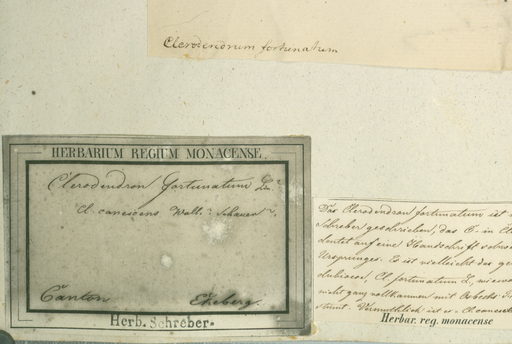 Clerodendrum fortunatum
HERBARIUM REGIUM MONACENSE.
Clerodendron fortunatum L.
Cl. canescens Wall. Schauer.
Canton Ekeberg.
Herb. Schreber.
Das Clerodendron fortunatum ist
Schreber geschrieben, das C. in
deutet auf eine Handschrift
Ursprunges. Es ist vielleicht das
Cl. fortunatum L.,
nicht ganz vollkommen mit Osbecks
stimmt. Vermuthlich ist es Cl. canescens
Herbar. reg. monacense